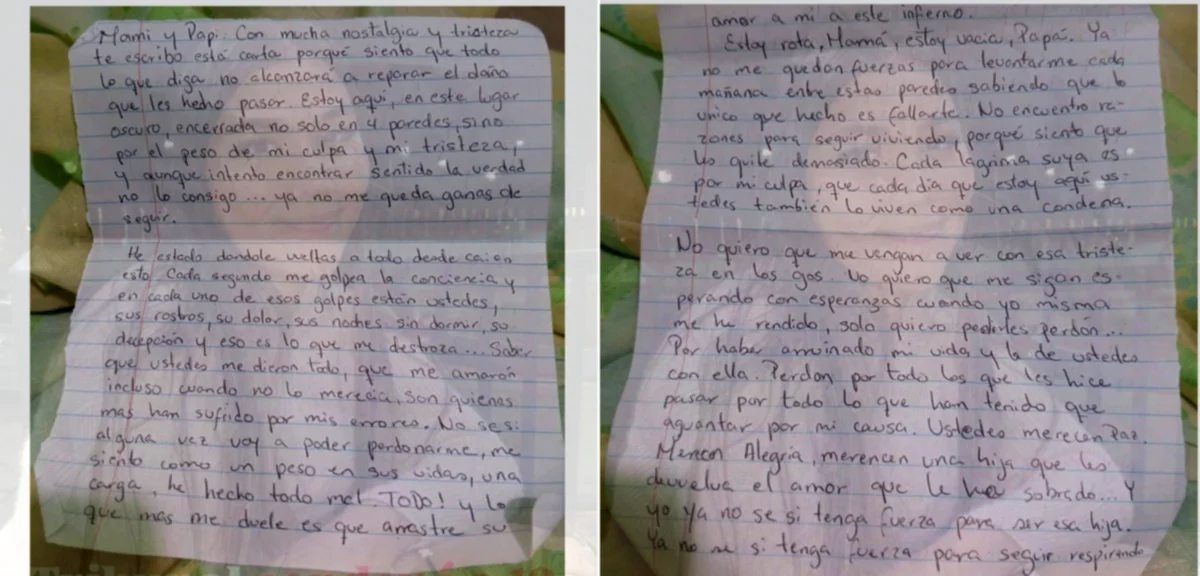 Mami y Papi: Con mucha nostalgia y tristeza
te escribo está carta porqué siento que todo
lo que diga no alcanzará a reparar el daño
que les hecho pasar. Estoy aquí, en este lugar
oscuro, encerrada no solo en 4 paredes, sino
por el peso de mi culpa y mi tristeza,
y aunque intento encontrar sentido la verdad
no lo consigo... ya no me queda ganas de
seguir.
He estado dandole vueltas a todo desde cai en
esto. Cada segundo me golpea la conciencia y
en cada uno de esos golpes están ustedes,
sus rostros, su dolor, sus noches sin dormir, su
decepción y eso es lo que me destroza... Saber
que ustedes me dieron todo, que me amarón
incluso cuando no lo merecia, son quienes
mas han sufrido por mis errores. No se si
alguna vez voy a poder perdonarme, me
siento como un peso en sus vidas, una
carga, he hecho todo mal. TODO! y lo
que mas me duele es que arrastre su
amor a mi a este infierno.
Estoy rota, Mamá, estoy vacia, Papá. Ya
no me quedan fuerzas para levantarme cada
mañana entre estas paredes sabiendo que lo
unico que hecho es fallarte. No encuentro ra-
zones para seguir viviendo, porqué siento que
les quite demasiado. Cada lágrima suya es
por mi culpa, que cada dia que estoy aquí us-
tedes también lo viven como una condena.
No quiero que me vengan a ver con esa triste-
za en los ojos. No quiero que me sigan es-
perando con esperanzas cuando yo misma
me he rendido, solo quiero pedirles perdón...
Por haber arruinado mi vida y la de ustedes
con ella. Perdon por todo los que les hice
pasar por todo lo que han tenido que
aguantar por mi causa. Ustedes merecen Paz.
Merecen Alegria, merencen una hija que les
devuelva el amor que le ha sobrado... Y
yo ya no se si tenga fuerza para ser esa hija.
Ya no se si tenga fuerza para seguir respirando